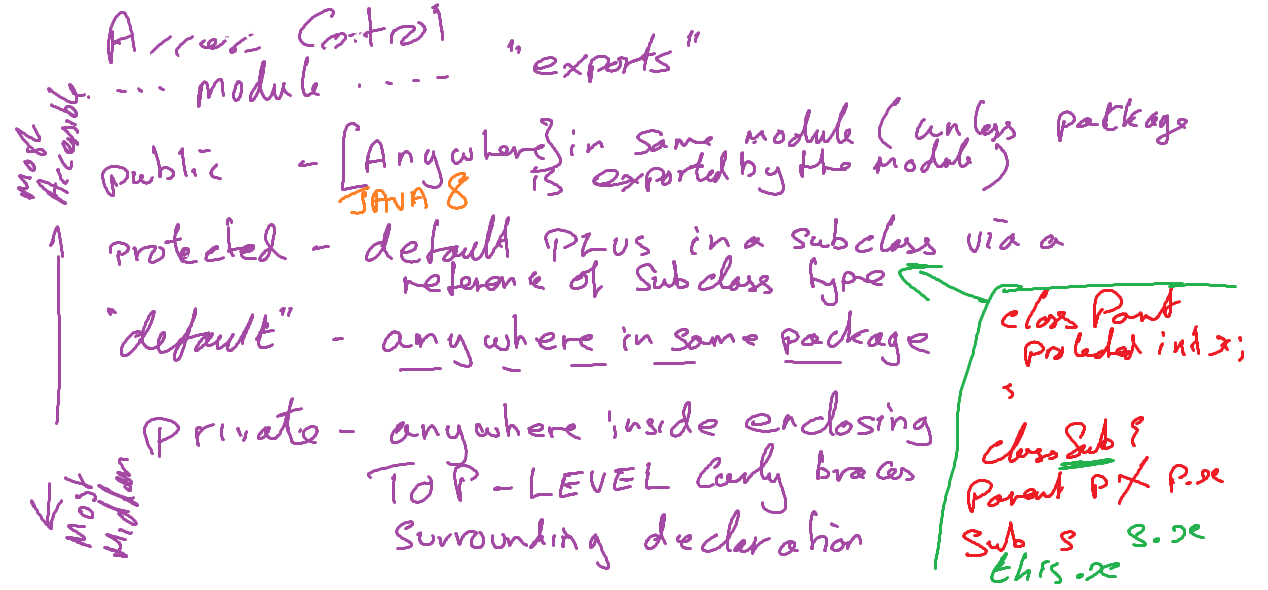 Access Control
... module .... "exports"
Most
Accessible
public - [Anywhere] in same module (unless package
is exported by the module)
JAVA 8
protected - default PLUS in a subclass via a
reference of subclass type
"default" - anywhere in same package
private - anywhere inside enclosing
TOP-LEVEL Curly braces
surrounding declaration
Most
Hidden
class Parent
protected int x;
}
class Sub {
Parent p X p.x
Sub s s.x
this.x